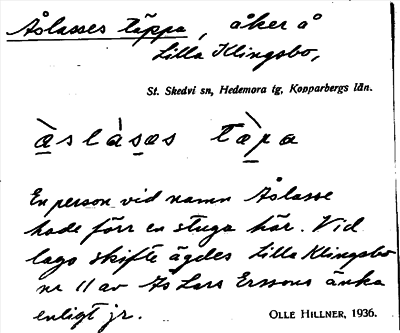 Åslasses täppa, åker å
Lilla Klingsbo,
St. Skedvi sn, Hedemora tg, Kopparbergs län.
àslàsas tàpa
En person vid namn Åslasse
hade förr en stuga här. Vid
laga skifte ägdes Lilla Klingsbo
nr 11 av Ås Lars Erssons änka
enligt jr.
OLLE HILLNER, 1936.